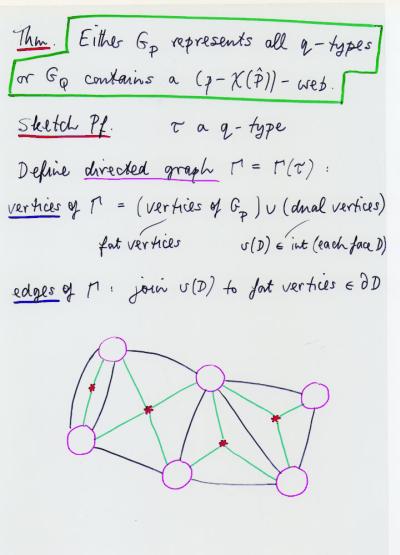 Thm. Either G_P represents all q-types
or G_Q contains a (p - χ(P̂)) - web.
Sketch Pf. τ a q-type
Define directed graph Γ = Γ(τ) :
vertices of Γ = (vertices of G_P) ∪ (dual vertices)
fat vertices v(D) ∈ int (each face D)
edges of Γ : join v(D) to fat vertices ∈ ∂D